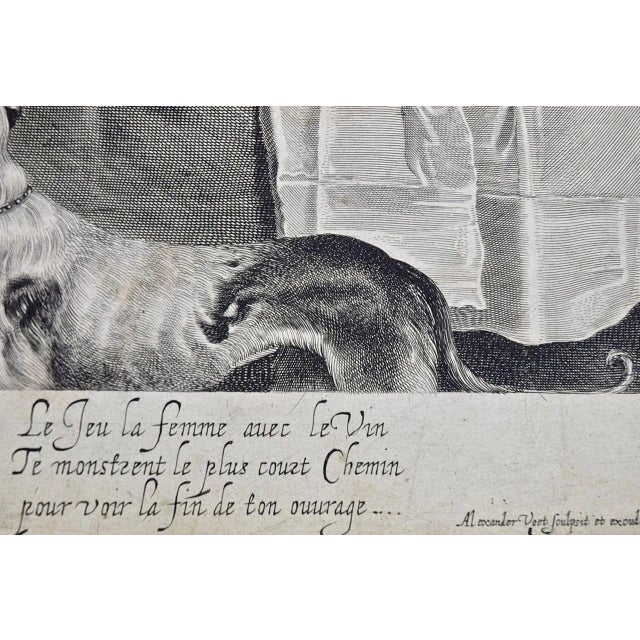 Le Jeu la femme auec le Vin
Te monstrent le plus court Chemin
pour voir la fin de ton ouurage....
Alexander Voet sculpsit et excud